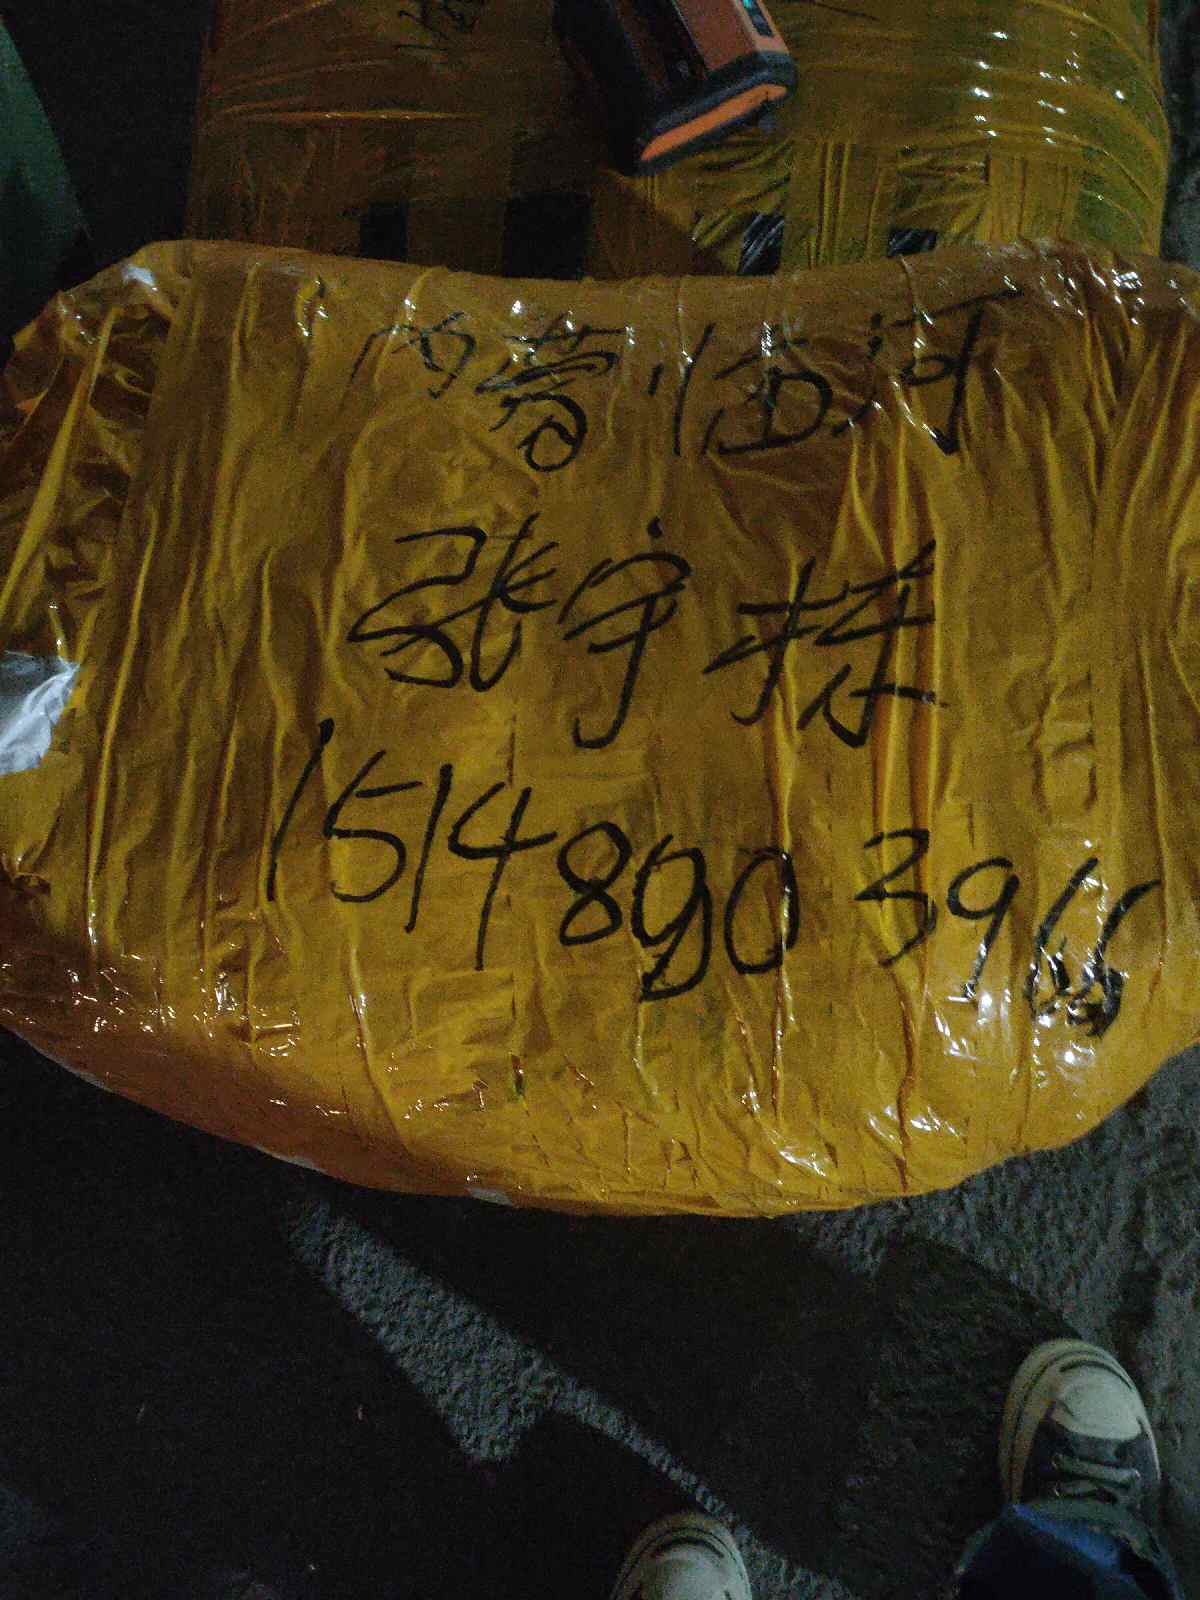 内蒙临河
张宇栋
15148903966